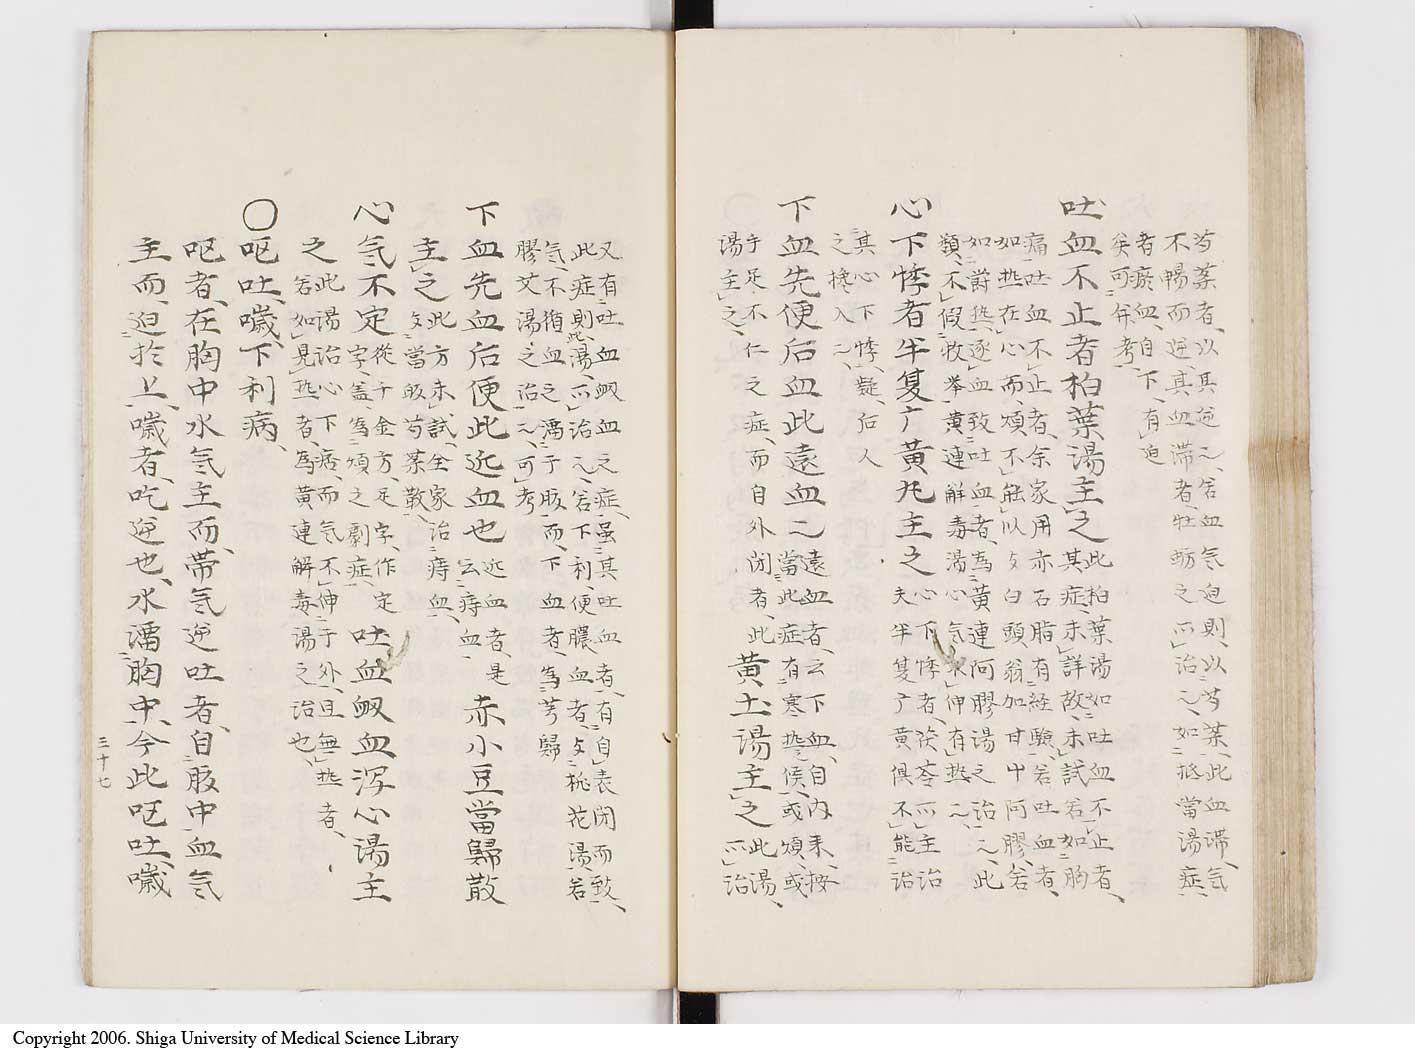 芍薬者、以其逆之、若血気迫則、以芍薬、此血滞、気
不暢而逆、其血滞者、牡蛎之所治之、如抵當湯症
者瘀血、自下、有迫
矣可併考、
吐血不止者柏葉湯主之
此柏葉湯如吐血不止者、
其症、未詳故、未試、若如胸
痛吐血不止者、余家用赤石脂有経験、若吐血者、
如热在心而、煩不能以攵白頭翁加甘艸阿膠、若
如欝热逐血致吐血者、為黄連阿膠湯之治之、此
類、不假枚挙、黄連解毒湯心気未伸有热之、
心下悸者半夏广黄丸主之
夫心下悸者、茯苓所主治
半夏广黄俱不能治
其心下悸、疑、后人
之攙入之、
下血先便后血此遠血之
遠血者、云下血、自内来、按
當此症有寒热之候、或煩、或
手足不仁之症、而自外閉者、此
黄土湯主之
此湯、
所治
湯主之、
又有吐血衂血之症、虽其吐血者、有自表閉而致、
此症、則此湯、所治之、若下利、便膿血者、攵桃花湯、若
気、不循血之濡于胶而、下血者為芎歸
膠艾湯之治之、可考
下血先血后便此近血也
近血者、是
云痔血
赤小豆當歸散
主之
此方未試、全家治痔血、
攵當皈芍薬散、
心気不定
從千金方、足字、作定
字、盖、為煩之劇症、
吐血衂血泻心湯主
之
此湯治心下痞、而気不伸于外、且無热者、
若如見热者、為黄連解毒湯之治也、
〇呕吐、噦、下利病、
呕者、在胸中水気主而、帯気逆吐者、自胶中血気
主而、迫於上、噦者、吃逆也、水濡胸中、今此呕吐、噦
三十七
Copyright 2006. Shiga University of Medical Science Library